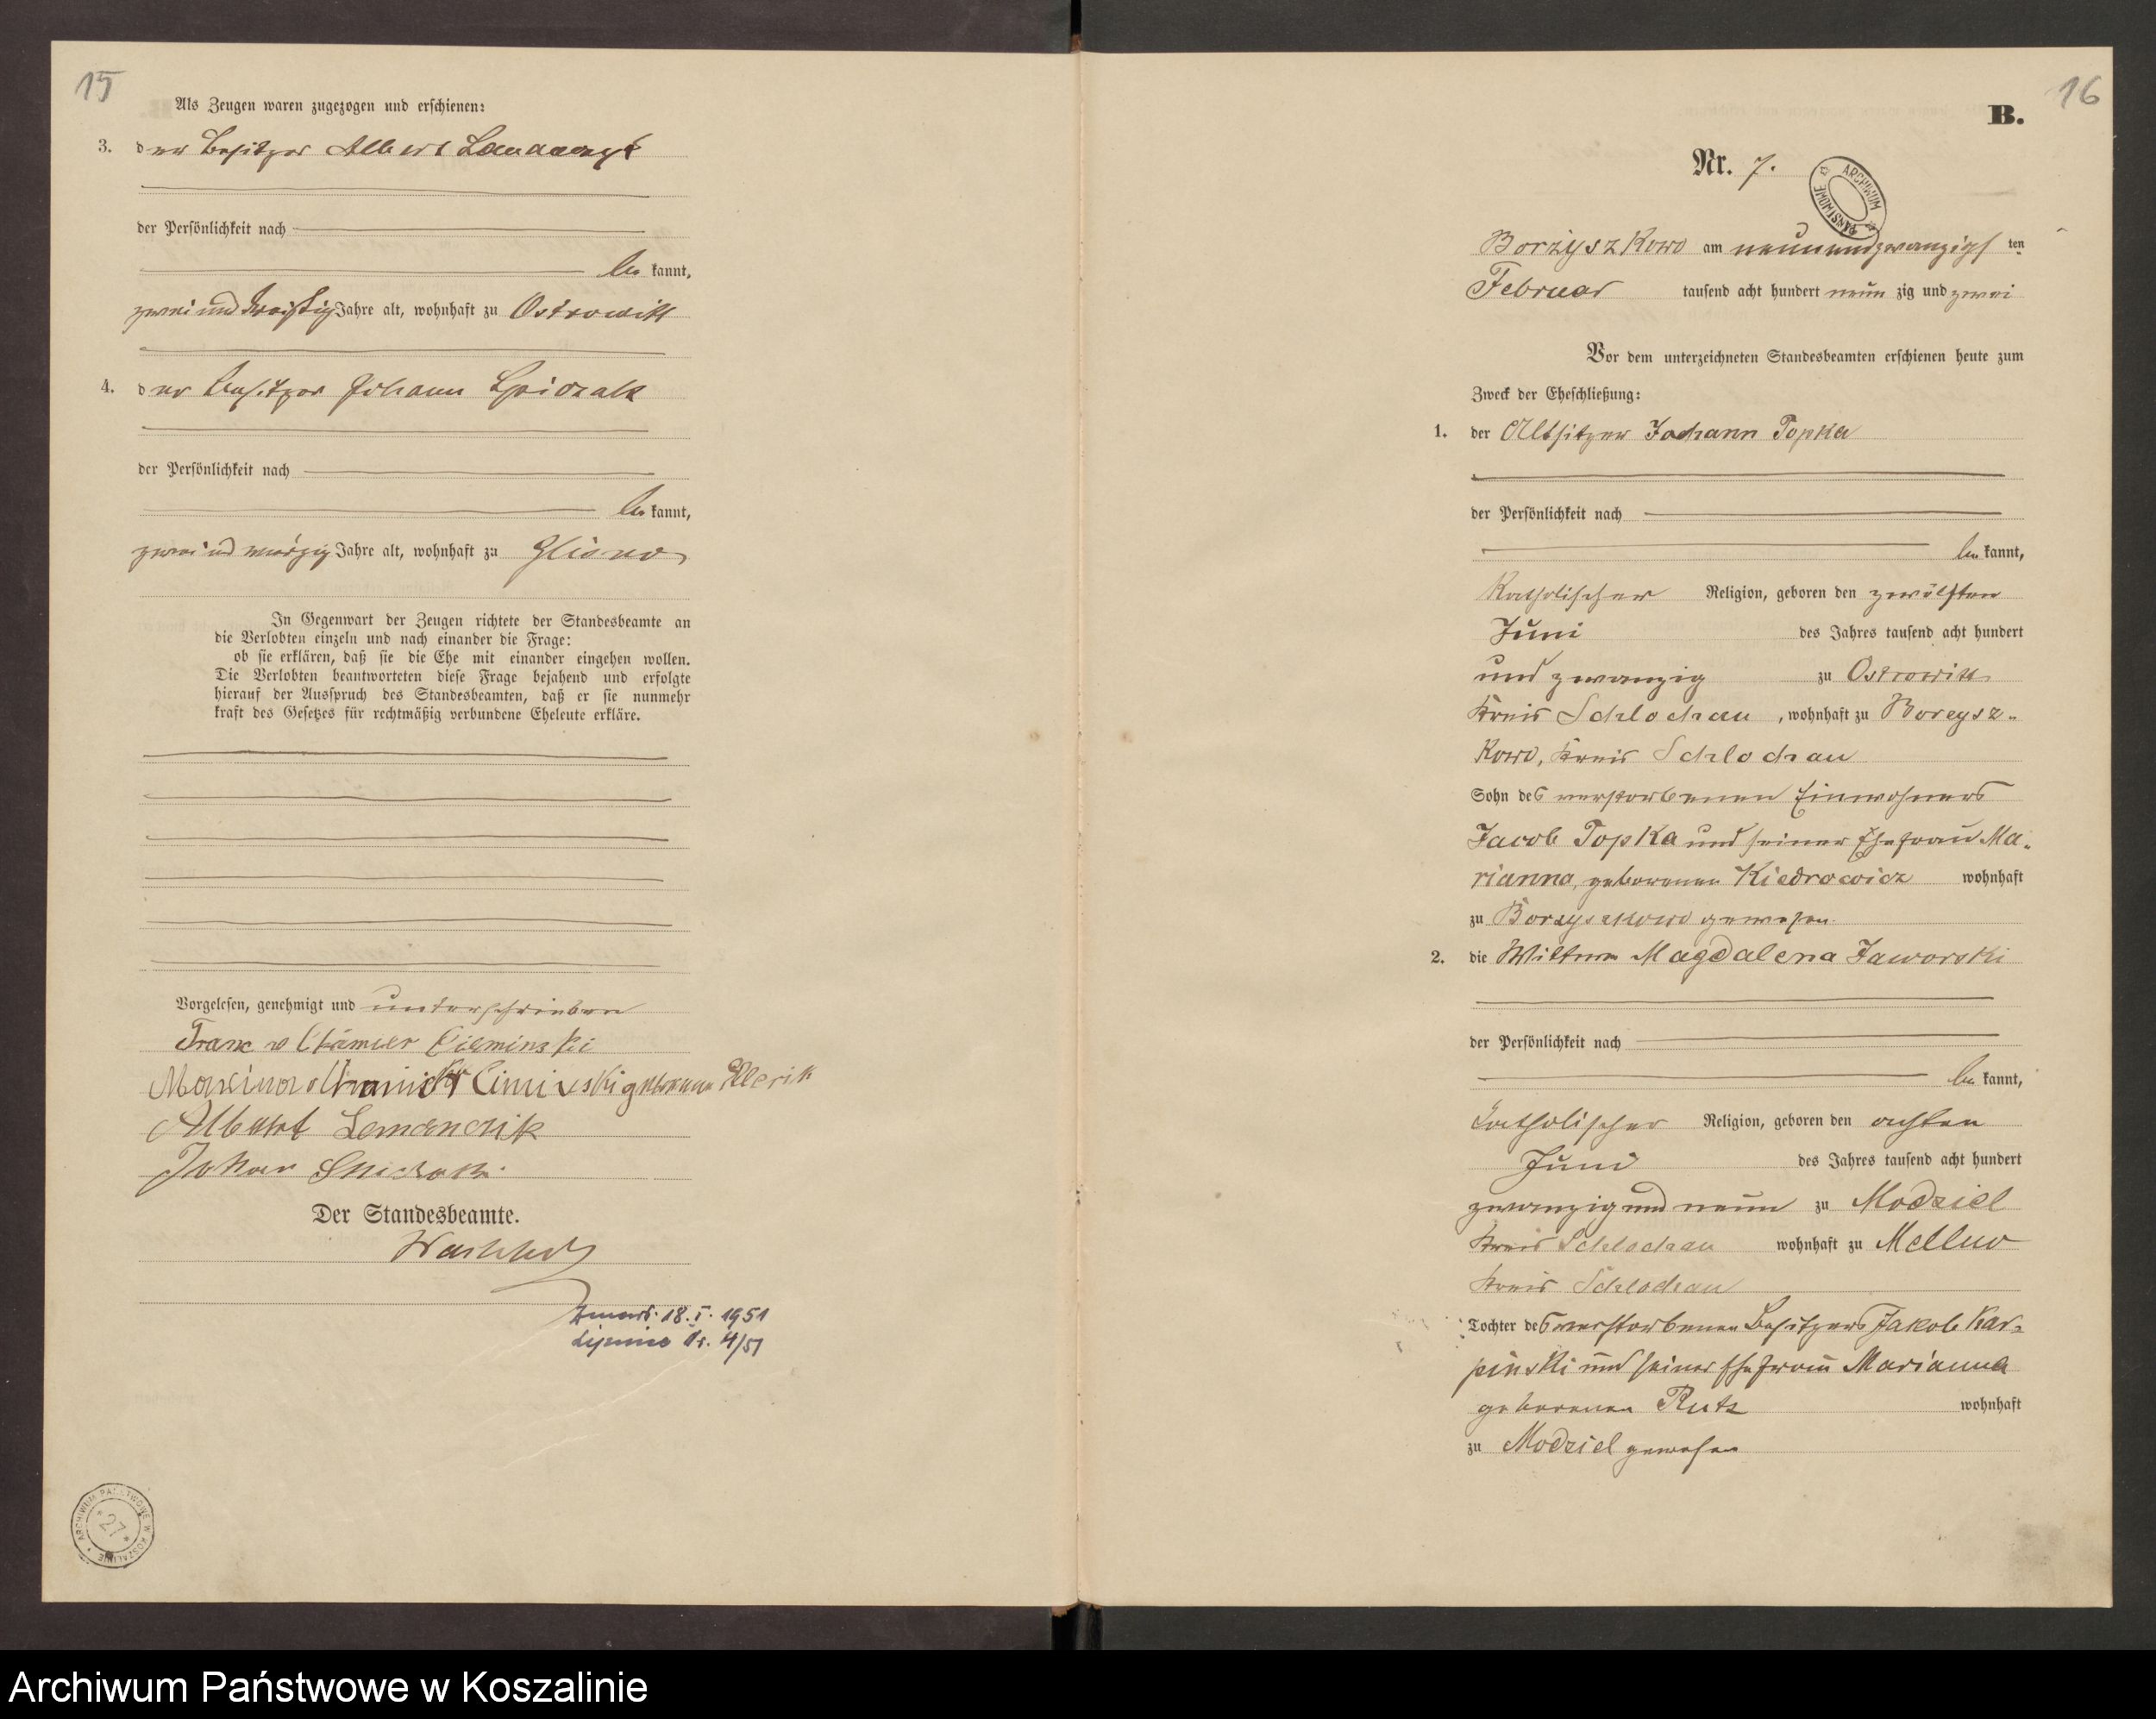 15
Als Zeugen waren zugezogen und erschienen:
3. der Besitzer Albert
der Persönlichkeit nach
be kannt,
zwei und dreißig Jahre alt, wohnhaft zu Ostrowitt
4. der Besitzer Johann
der Persönlichkeit nach
be kannt,
zwei und vierzig Jahre alt, wohnhaft zu Glisno
In Gegenwart der Zeugen richtete der Standesbeamte an
die Verlobten einzeln und nach einander die Frage:
ob sie erklären, daß sie die Ehe mit einander eingehen wollen.
Die Verlobten beantworteten diese Frage bejahend und erfolgte
hierauf der Ausspruch des Standesbeamten, daß er sie nunmehr
kraft des Gesetzes für rechtmäßig verbundene Eheleute erkläre.
Vorgelesen, genehmigt und unterschrieben
Franz v
geborene
Albert
Johan
Der Standesbeamte.
Zmarł. 18. I. 1951
Lipnica Nr. 4/51
ARCHIWUM PAŃSTWOWE W KOSZALINIE
* 27 *
16
B.
Nr. 7.
ARCHIWUM PAŃSTWOWE
Borzyszkowo am neunundzwanzigs ten
Februar tausend acht hundert neun zig und zwei
Vor dem unterzeichneten Standesbeamten erschienen heute zum
Zweck der Eheschließung:
1. der Altsitzer Johann Topka
der Persönlichkeit nach
be kannt,
Katholischer Religion, geboren den zwölften
Juni des Jahres tausend acht hundert
und zwanzig zu Ostrowitt
Kreis Schlochau , wohnhaft zu Borzysz-
kowo, Kreis Schlochau
Sohn des verstorbenen Einwohners
Jacob Topka und seiner Ehefrau Ma-
rianna, geborenen Kiedrowicz wohnhaft
zu Borzyszkowo gewesen
2. die Wittwe Magdalena Jaworski
der Persönlichkeit nach
be kannt,
katholischer Religion, geboren den achten
Juni des Jahres tausend acht hundert
zwanzig und neun zu Modziel
Kreis Schlochau wohnhaft zu Melluo
Kreis Schlochau
Tochter des verstorbenen Besitzers Jakob Kar-
pinski und seiner Ehefrau Marianna
geborenen Rutz wohnhaft
zu Modziel gewesen
Archiwum Państwowe w Koszalinie